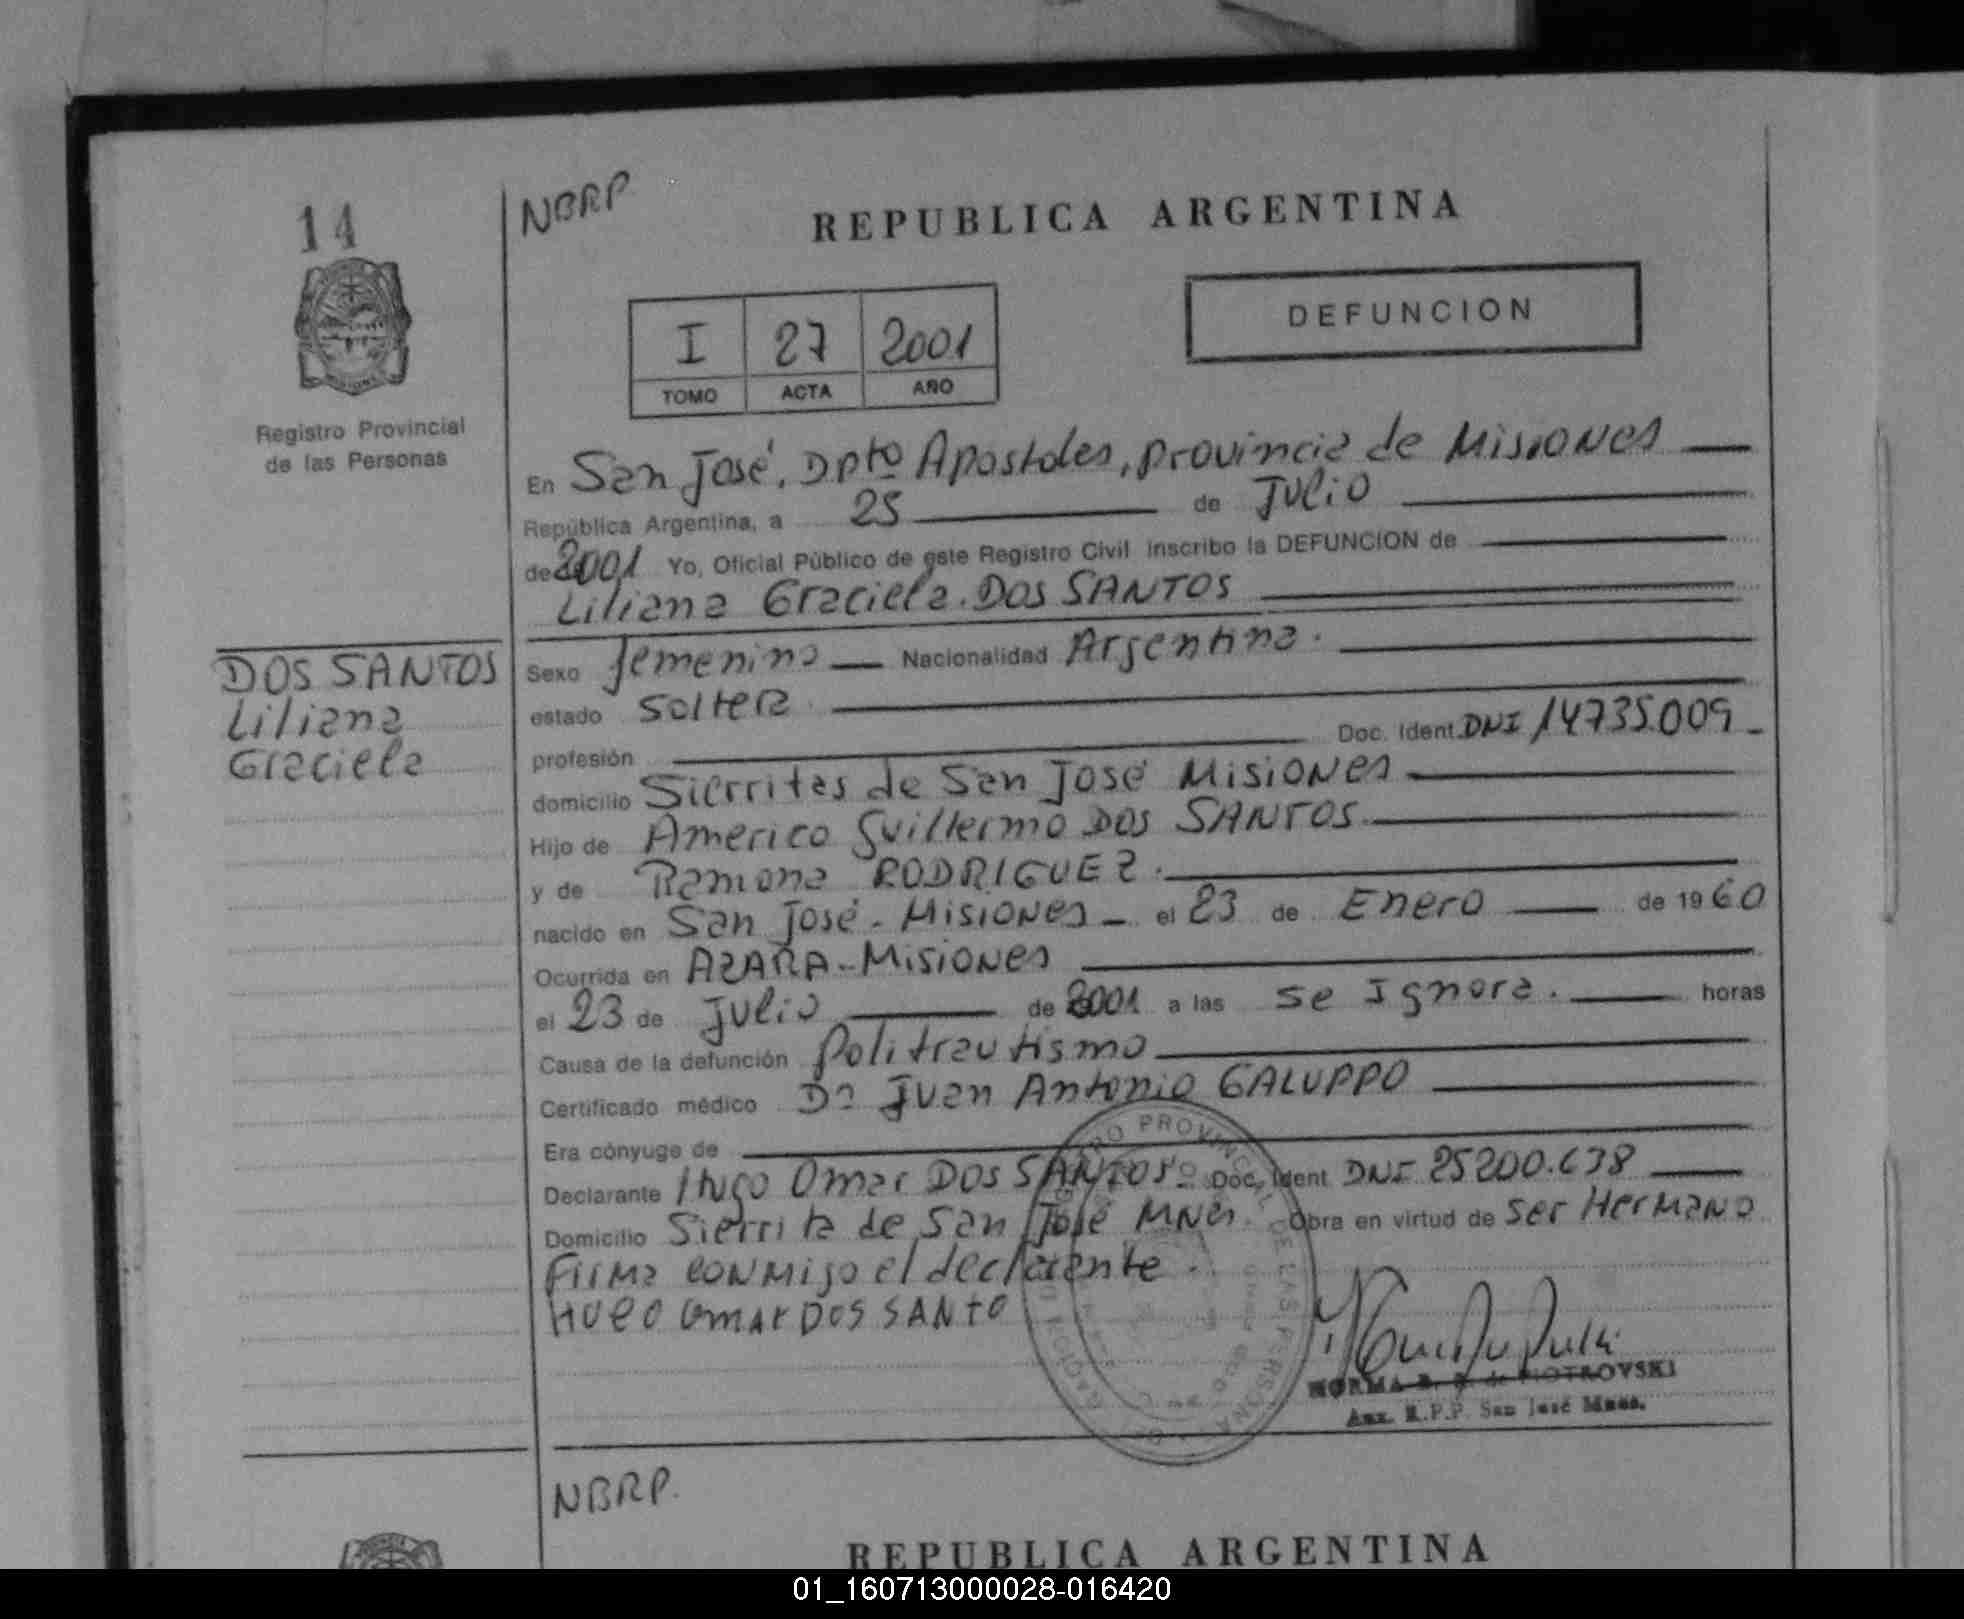 14
NBRP
REPUBLICA ARGENTINA
I 27 2001
TOMO ACTA AÑO
DEFUNCION
Registro Provincial
de las Personas
En San José, Dpto Apostoles, provincia de Misiones
República Argentina, a 25 de Julio
de 2001 Yo, Oficial Público de este Registro Civil inscribo la DEFUNCION de
Liliana Graciela DOS SANTOS
DOS SANTOS
Liliana
Graciela
Sexo femenino Nacionalidad Argentina.
estado soltera
profesión Doc. Ident. DNI 14735.009
domicilio Sierritas de San José Misiones
Hijo de Americo Guillermo DOS SANTOS
y de Ramona RODRIGUEZ.
nacido en San José - Misiones - el 23 de Enero de 1960
Ocurrida en AZARA - Misiones
el 23 de Julio de 2001 a las se Ignora. horas
Causa de la defunción Politrautismo
Certificado médico Dr Juan Antonio GALUPPO
Era cónyuge de
Declarante Hugo Omar DOS SANTOS - Doc. Ident. DNI 25200.638
Domicilio Sierrita de San José MNes. Obra en virtud de ser Hermano
Firma conmigo el declarante.
HUGO OMAR DOS SANTO
NORMA de PIOTROVSKI
Aux. R.P.P. San José Mnes.
NBRP.
REPUBLICA ARGENTINA
01_160713000028-016420